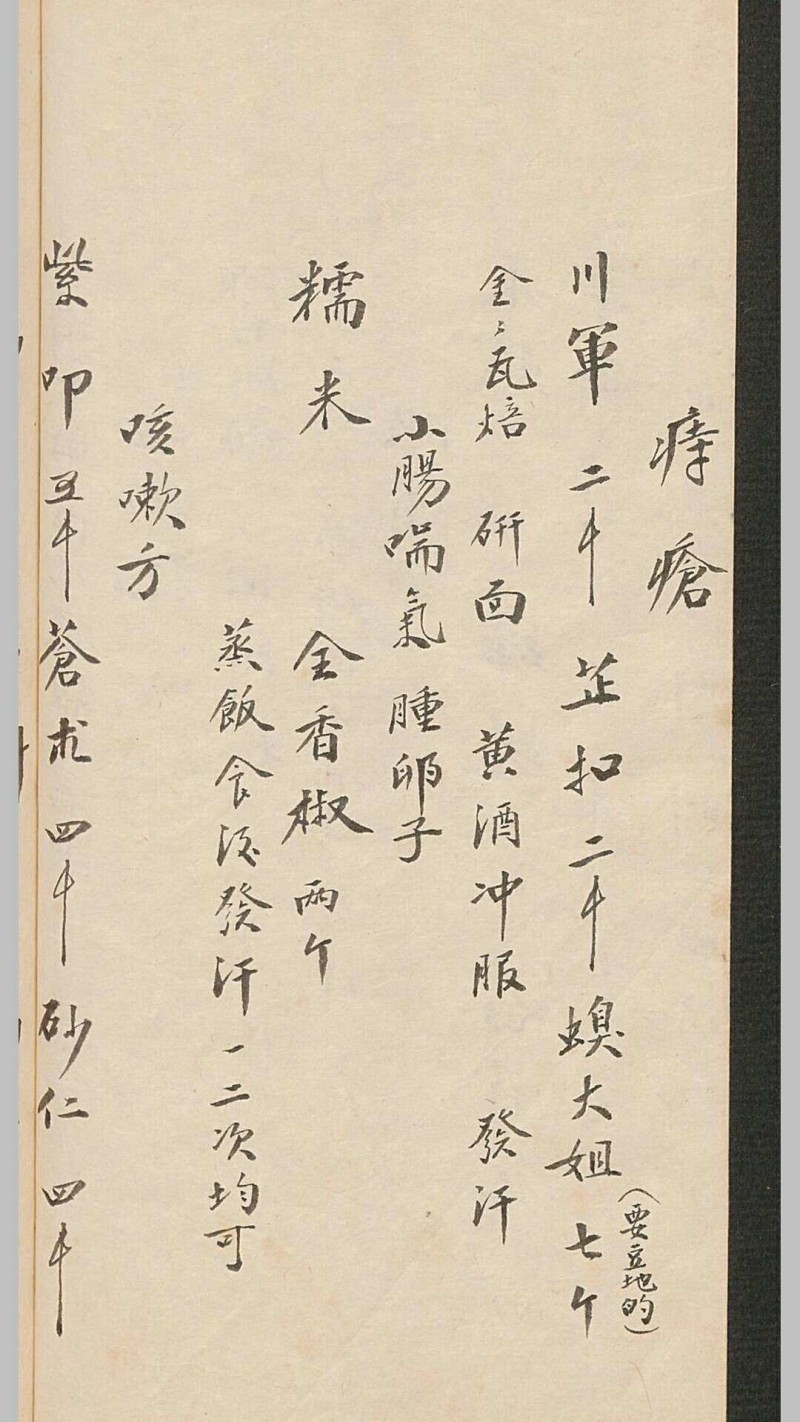 痔瘡
川軍 二卜 芷扣 二卜 螑大姐 七个
(要豆地的)
金〻瓦焙 研面 黄酒冲服 發汗
小腸喘氣 腫卵子
糯米 全香椒 两个
蒸飯食後發汗 一二次均可
咳嗽方
紫叩 五卜 蒼朮 四卜 砂仁 四卜